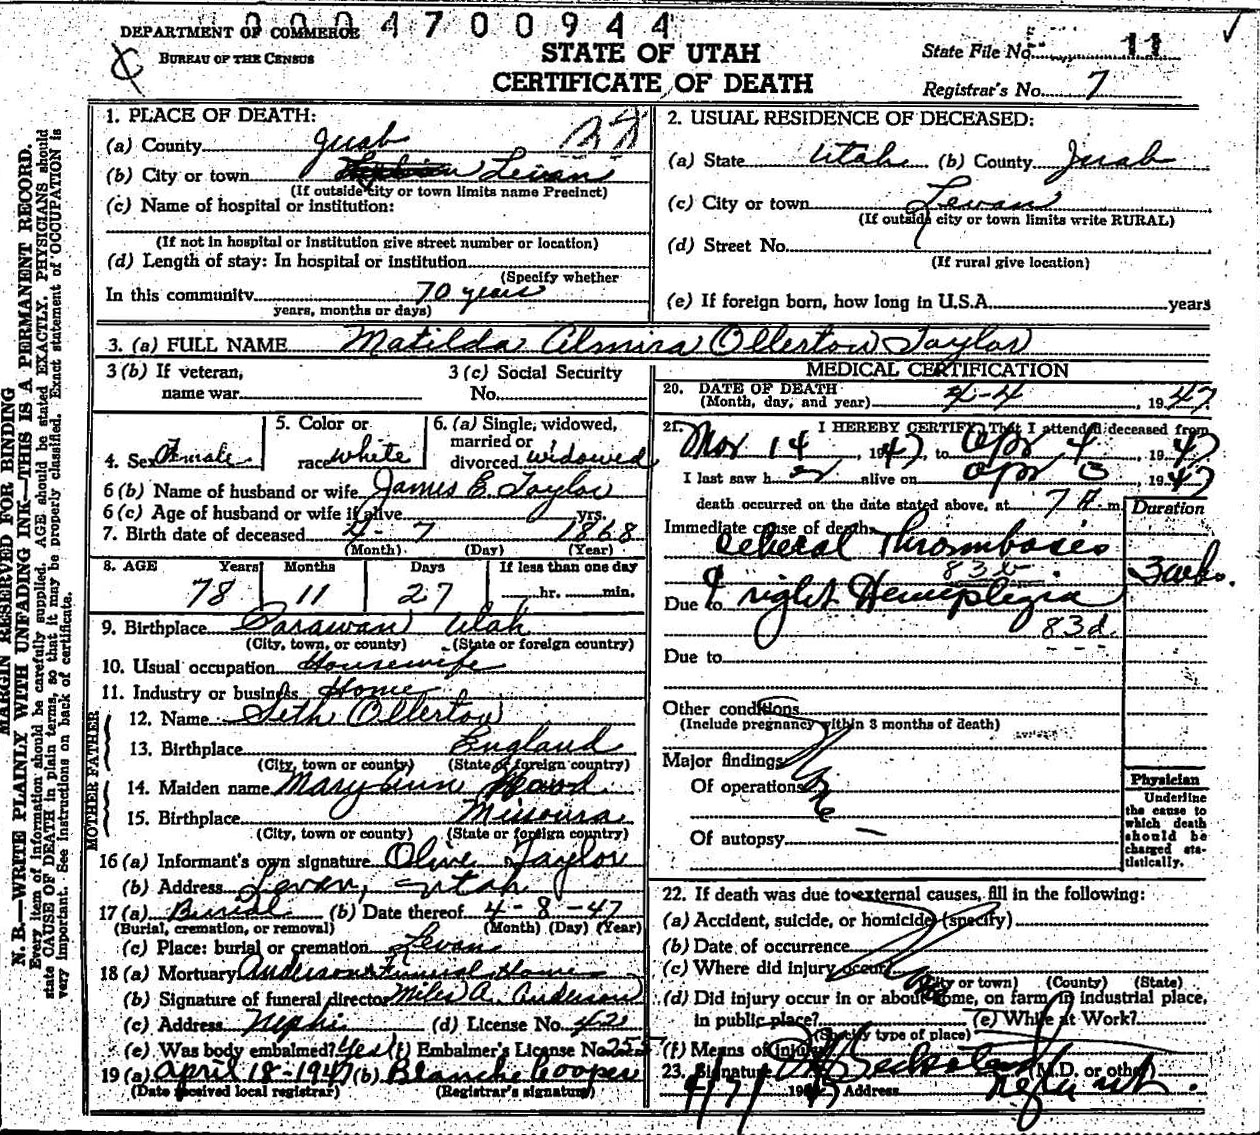 0004700944
DEPARTMENT OF COMMERCE
BUREAU OF THE CENSUS
STATE OF UTAH
CERTIFICATE OF DEATH
State File No. 11
Registrar's No. 7
MARGIN RESERVED FOR BINDING
N. B.—WRITE PLAINLY WITH UNFADING INK—THIS IS A PERMANENT RECORD.
Every item of information should be carefully supplied. AGE should be stated EXACTLY. PHYSICIANS should
state CAUSE OF DEATH in plain terms, so that it may be properly classified. Exact statement of OCCUPATION is
very important. See instructions on back of certificate.
1. PLACE OF DEATH:
(a) County Juab
(b) City or town Levan
(If outside city or town limits name Precinct)
(c) Name of hospital or institution:
(If not in hospital or institution give street number or location)
(d) Length of stay: In hospital or institution
(Specify whether
In this community 70 years
years, months or days)
2. USUAL RESIDENCE OF DECEASED:
(a) State Utah (b) County Juab
(c) City or town Levan
(If outside city or town limits write RURAL)
(d) Street No.
(If rural give location)
(e) If foreign born, how long in U.S.A. years
3. (a) FULL NAME Matilda Almira Ollerton Taylor
3 (b) If veteran, name war
3 (c) Social Security No.
4. Sex Female
5. Color or race white
6. (a) Single, widowed, married or divorced widowed
6 (b) Name of husband or wife James E. Taylor
6 (c) Age of husband or wife if alive yrs.
7. Birth date of deceased 4 - 7 1868
(Month) (Day) (Year)
8. AGE Years Months Days If less than one day
78 11 27 hr. min.
9. Birthplace Parawan Utah
(City, town, or county) (State or foreign country)
10. Usual occupation Housewife
11. Industry or business Home
FATHER
12. Name Seth Ollerton
13. Birthplace England
(City, town or county) (State or foreign country)
MOTHER
14. Maiden name Mary Ann
15. Birthplace Missoura
(City, town or county) (State or foreign country)
16 (a) Informant's own signature Olive Taylor
(b) Address Levan, Utah
17 (a) Burial (b) Date thereof 4-8-47
(Burial, cremation, or removal) (Month) (Day) (Year)
(c) Place: burial or cremation Levan
18 (a) Mortuary Anderson Funeral Home
(b) Signature of funeral director Miles A. Anderson
(c) Address Nephi (d) License No. 42
(e) Was body embalmed? Yes (f) Embalmer's License No. 255
19 (a) April 18-1947 (b) Blanche Cooper
(Date received local registrar) (Registrar's signature)
MEDICAL CERTIFICATION
20. DATE OF DEATH
(Month, day, and year) 4-4, 1947
21. I HEREBY CERTIFY That I attended deceased from
Mar 14, 1947, to Apr 4, 1947
I last saw her alive on Apr 3, 1947
death occurred on the date stated above, at 7 A. m.
Duration
Immediate cause of death
Cerebral Thrombosis
83b
3 wks.
Due to & right Hemiplegia
83d
Due to
Other conditions
(Include pregnancy within 3 months of death)
Major findings
Of operations
Of autopsy
Physician
Underline
the cause to
which death
should be
charged sta-
tistically.
22. If death was due to external causes, fill in the following:
(a) Accident, suicide, or homicide (specify)
(b) Date of occurrence
(c) Where did injury occur?
(City or town) (County) (State)
(d) Did injury occur in or about home, on farm, in industrial place,
in public place? (e) While at Work?
(Specify type of place)
(f) Means of injury
23. Signature (M.D. or other)
4/7/ 1947 Address